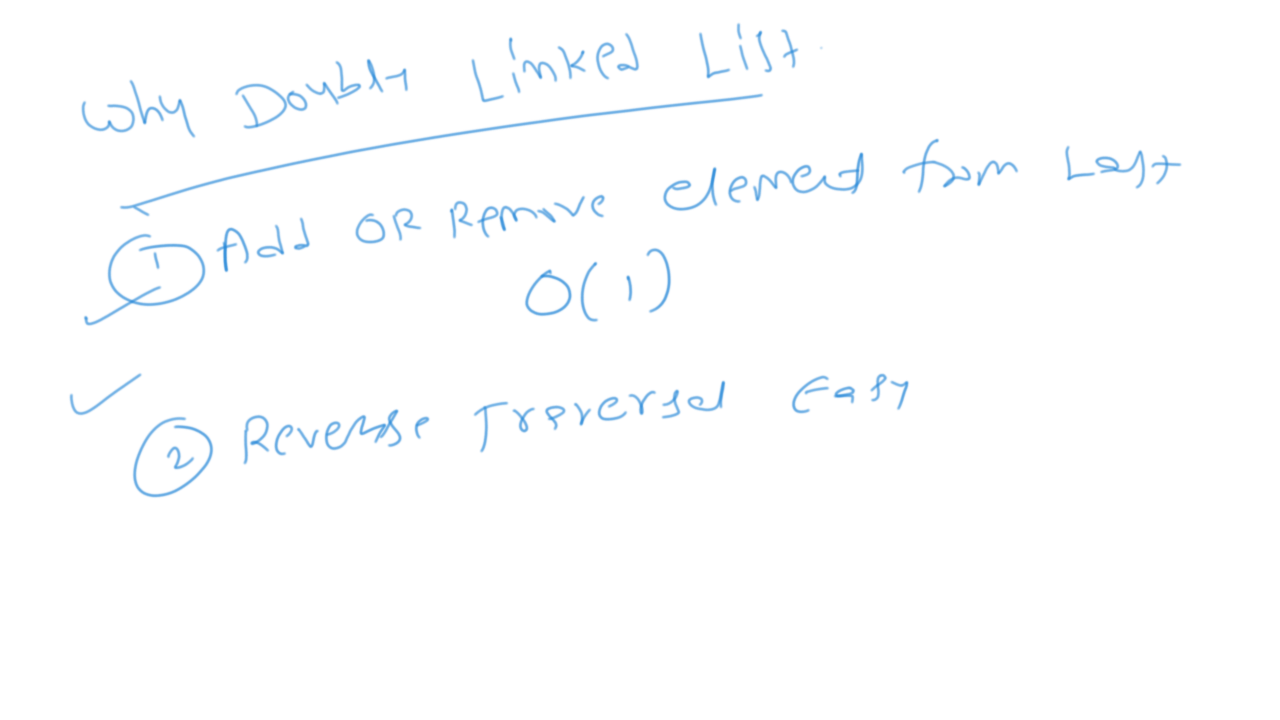 Why Doubly Linked List
1 Add OR Remove element from Last
O(1)
2 Reverse Traversal Easy